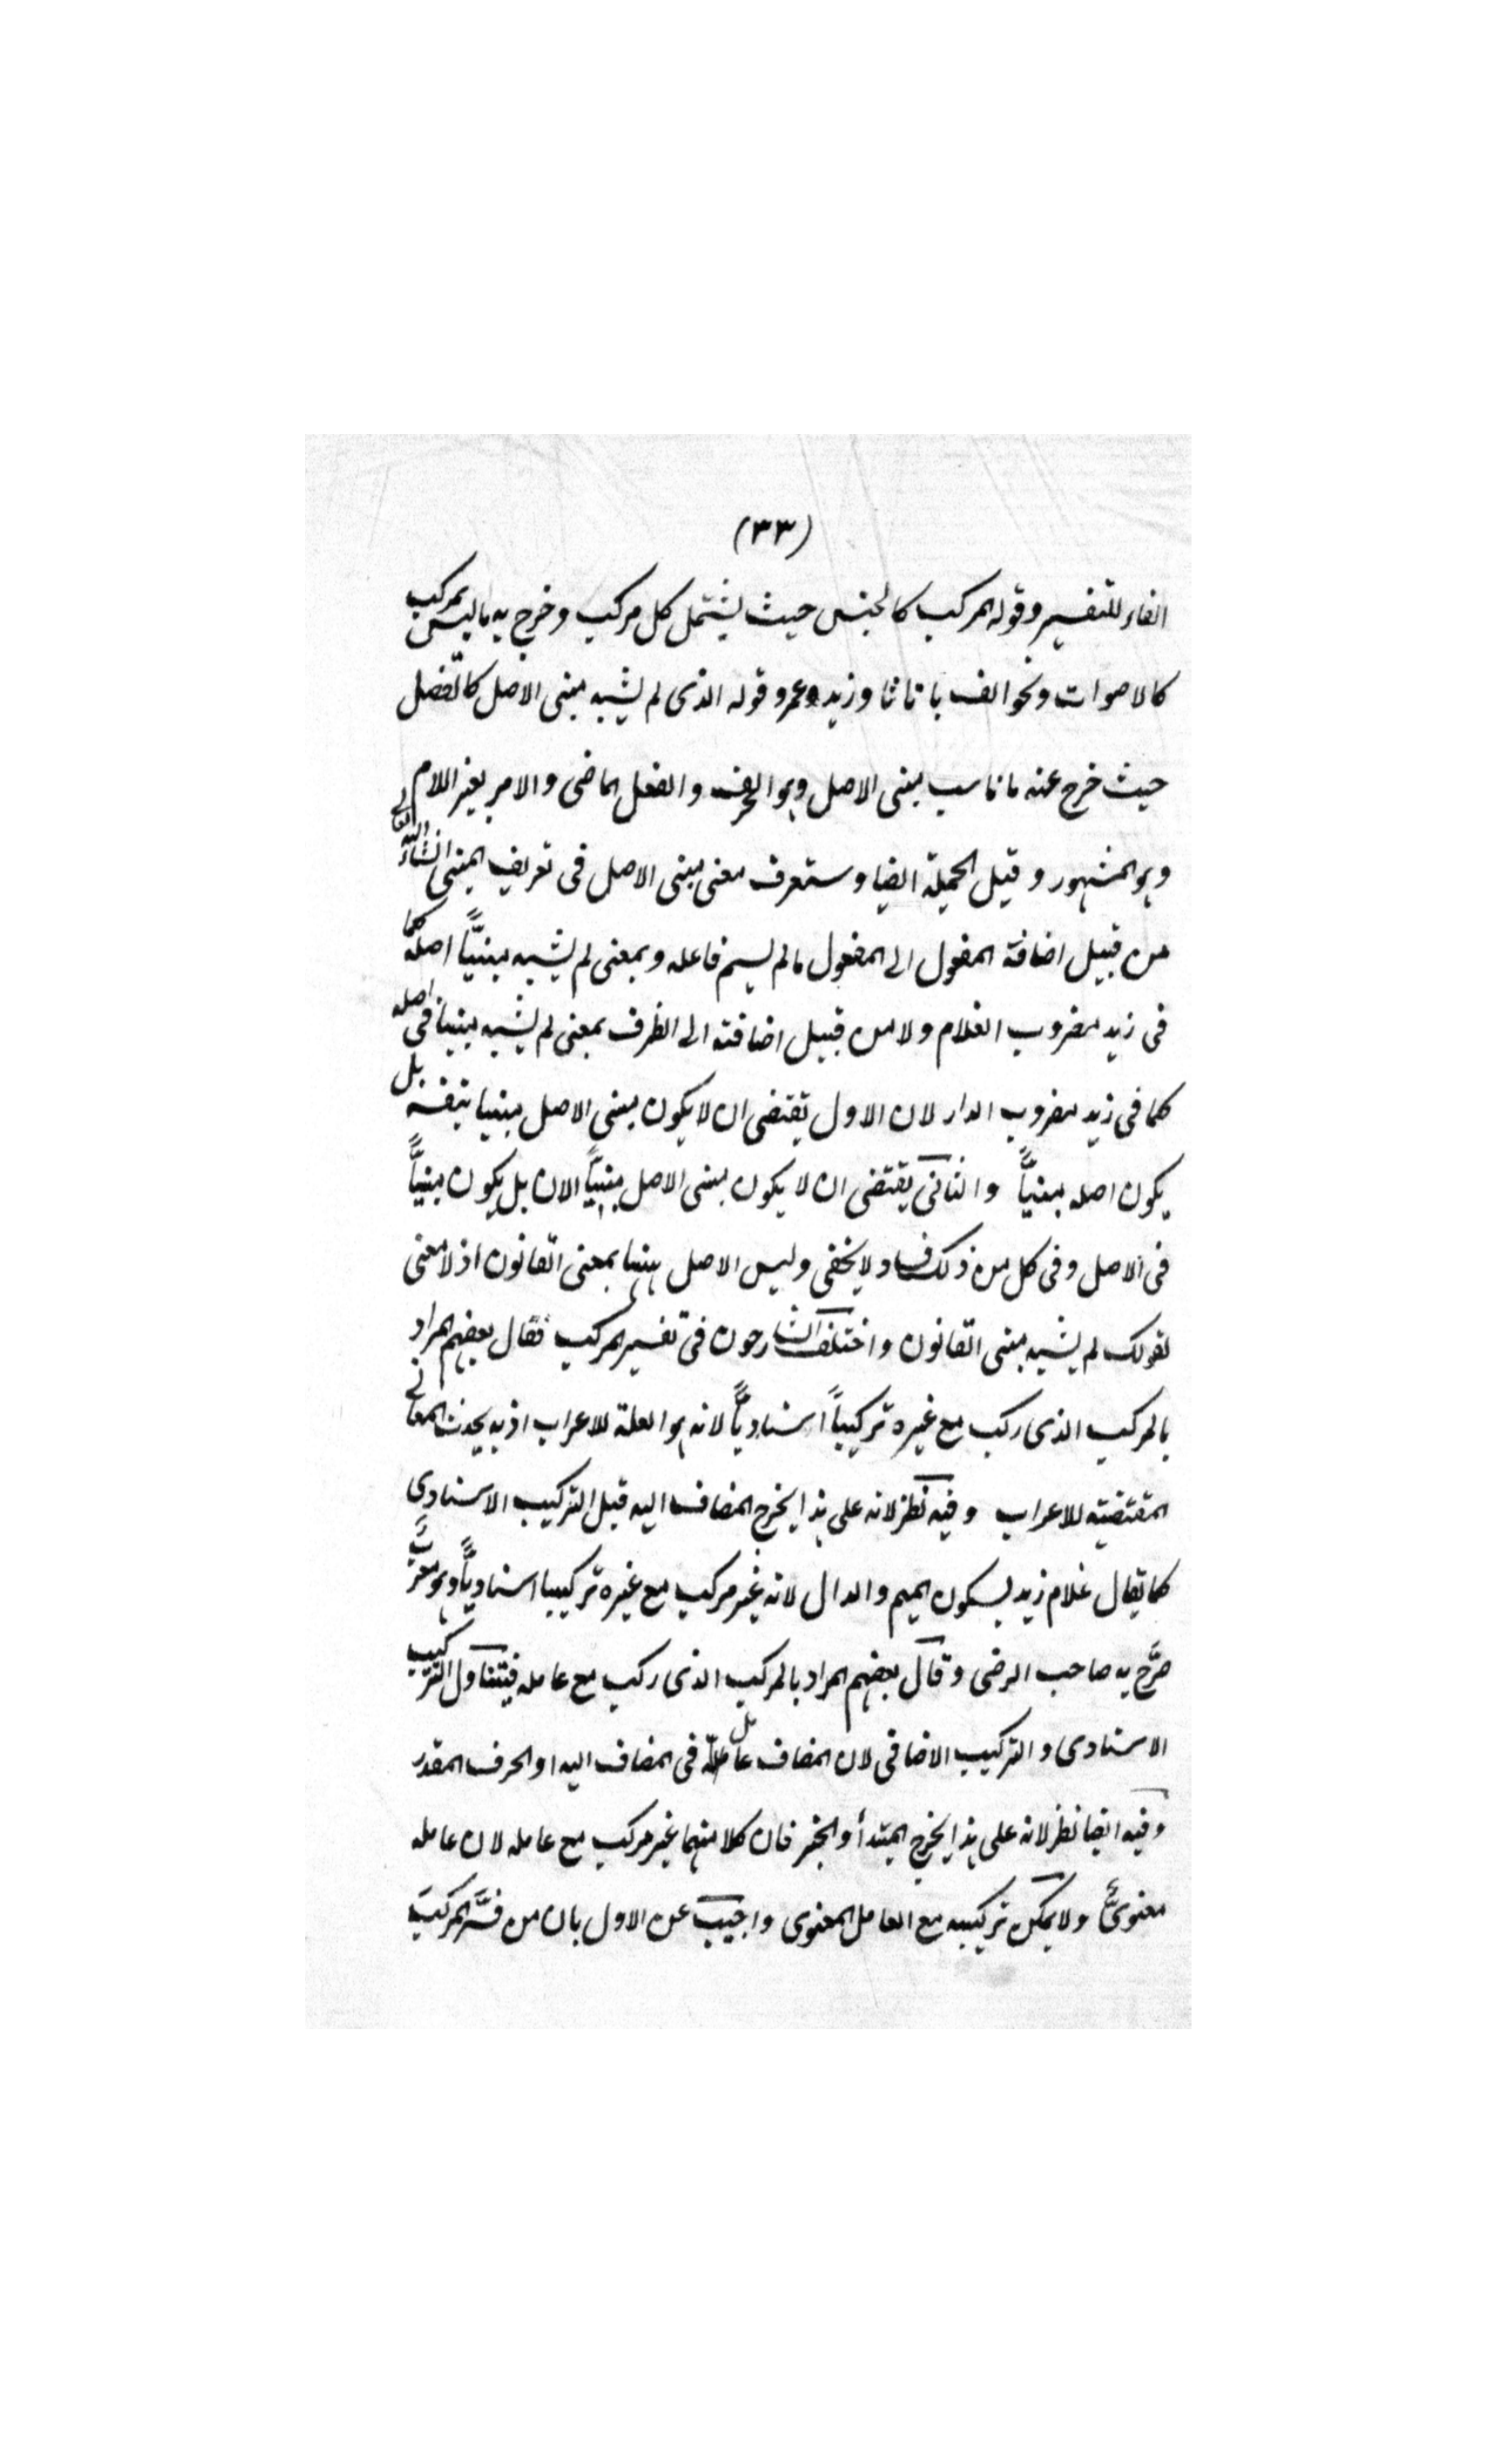 (٣٣)
الفاء للتفسير وقوله المركب كالجنس حيث يشتمل كل مركب وخرج به ما ليس بمركب
كالاصوات ونحو الف با تا ثا وزيد وعمرو قوله الذى لم يشبه مبنى الاصل كالفصل
حيث خرج عنه ما ناسب مبنى الاصل وهو الحرف والفعل الماضى والامر بغير اللام
وهو المشهور وقيل الجملة ايضا وستعرف معنى مبنى الاصل فى تعريف المبنى انشاء الله تعالى
من قبيل اضافة المفعول الى المفعول ما لم يسم فاعله وبمعنى لم يشبه مبنيًّا اصله كما
فى زيد مضروب الغلام ولا من قبيل اضافته الى الظرف بمعنى لم يشبه مبنيا فى اصله
كما فى زيد مضروب الدار لان الاول يقتضى ان لا يكون مبنى الاصل مبنيا بنفسه بل
يكون اصله مبنيًّا والثانى يقتضى ان لا يكون مبنى الاصل مبنيًّا الان بل يكون مبنيًّا
فى الاصل وفى كل من ذلك فساد لا يخفى وليس الاصل ههنا بمعنى القانون اذ لا معنى
لقولك لم يشبه مبنى القانون واختلف الشارحون فى تفسير المركب فقال بعضهم المراد
بالمركب الذى ركب مع غيره تركيباً اسناديًّا لانه هو العلة للاعراب اذ به يحدث المعانى
المقتضية للاعراب وفيه نظر لانه على هذا يخرج المضاف اليه قبل التركيب الاسنادى
كما يقال غلام زيد بسكون الميم والدال لانه غير مركب مع غيره تركيبا اسناديًّا وهو معربٌ
صرَّح به صاحب الرضى وقال بعضهم المراد بالمركب الذى ركب مع عامله فيتناول التركيب
الاسنادى والتركيب الاضافى لان المضاف عامل فى المضاف اليه او الحرف المقدر
وفيه ايضا نظر لانه على هذا يخرج المبتدأ والخبر فان كلا منهما غير مركب مع عامله لان عامله
معنوىٌّ ولا يمكن تركيبه مع العامل المعنوى واجيب عن الاول بان من فسَّر المركبَ